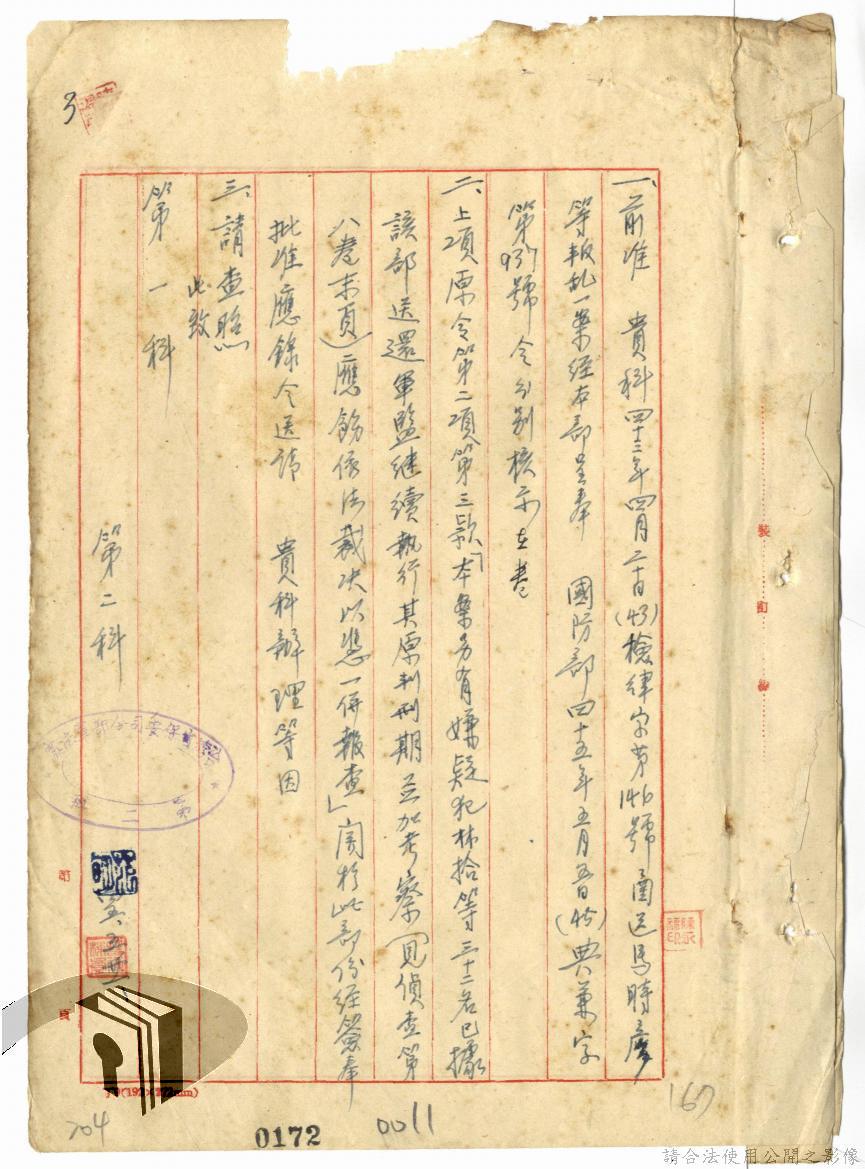 3
一、前准　貴科四十三年四月二十日(43)檢律字第146號函送馬時彥
等叛乱一案經本部呈奉　國防部四十五年五月五日(45)典兼字
第937號令分別核示在卷
二、上項原令第二項第三款「本案另有嫌疑犯林拾等三十二名已據
該部送還軍監继續執行其原判刑期並加考察(見偵查第
八卷末頁)應飭依法裁决以憑一併報查」関於此部份經簽奉
批准應錄令送請　貴科辦理等因
三、請查照
此致
第一科
第二科
吳
五
裝
訂
線
頁
204
0172
0011
167
請合法使用公開之影像